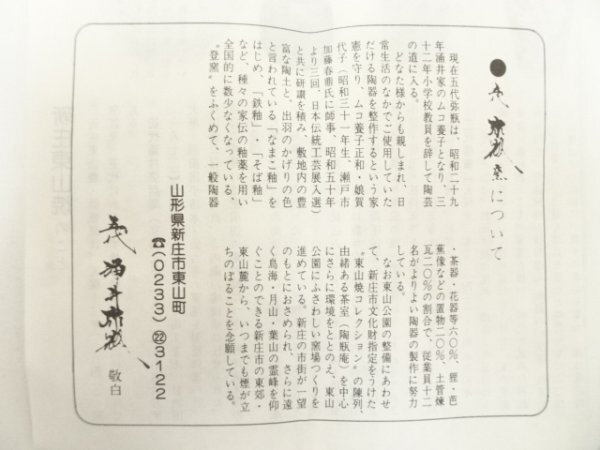 ●弥瓶窯について
現在五代弥瓶は、昭和二十九
年涌井家のムコ養子となり、三
十二年小学校教員を辞して陶芸
の道に入る。
どなた様からも親しまれ、日
常生活のなかでご使用していた
だける陶器を整作するという家
憲を守り、ムコ養子正和・娘賀
代子(昭和三十一年生、瀬戸市
加藤春鼎氏に師事、昭和五十年
より三回、日本伝統工芸展入選)
と共に研讃を積み、敷地内の豊
富な陶土と、出羽のかげりの色
と言われている「なまこ釉」を
はじめ、「鉄釉」・「そば釉」
など、種々の家伝の釉薬を用い
全国的に数少なくなっている、
〝登窯〟をふくめて、一般陶器
・茶器・花器等六〇%、狸・芭
蕉像などの置物二〇%、土管煉
瓦二〇%の割合で、従業員十二
名がよりよい陶器の製作に努力
している。
なお東山公園の整備にあわせ
て、新庄市文化財指定をうけた
〝東山焼コレクション〟の陳列、
由緒ある茶室(陶瓶庵)を中心
にさらに環境をととのえ、東山
公園にふさわしい窯場つくりを
進めている。新庄の市街が一望
のもとにおさめられ、さらに遠
く鳥海・月山・葉山の霊峰を仰
ぐことのできる新庄市の東郊・
東山麓から、いつまでも煙が立
ちのぼることを念願している。
山形県新庄市東山町
☎(0233)㉒3122
五代 涌井弥瓶 敬白